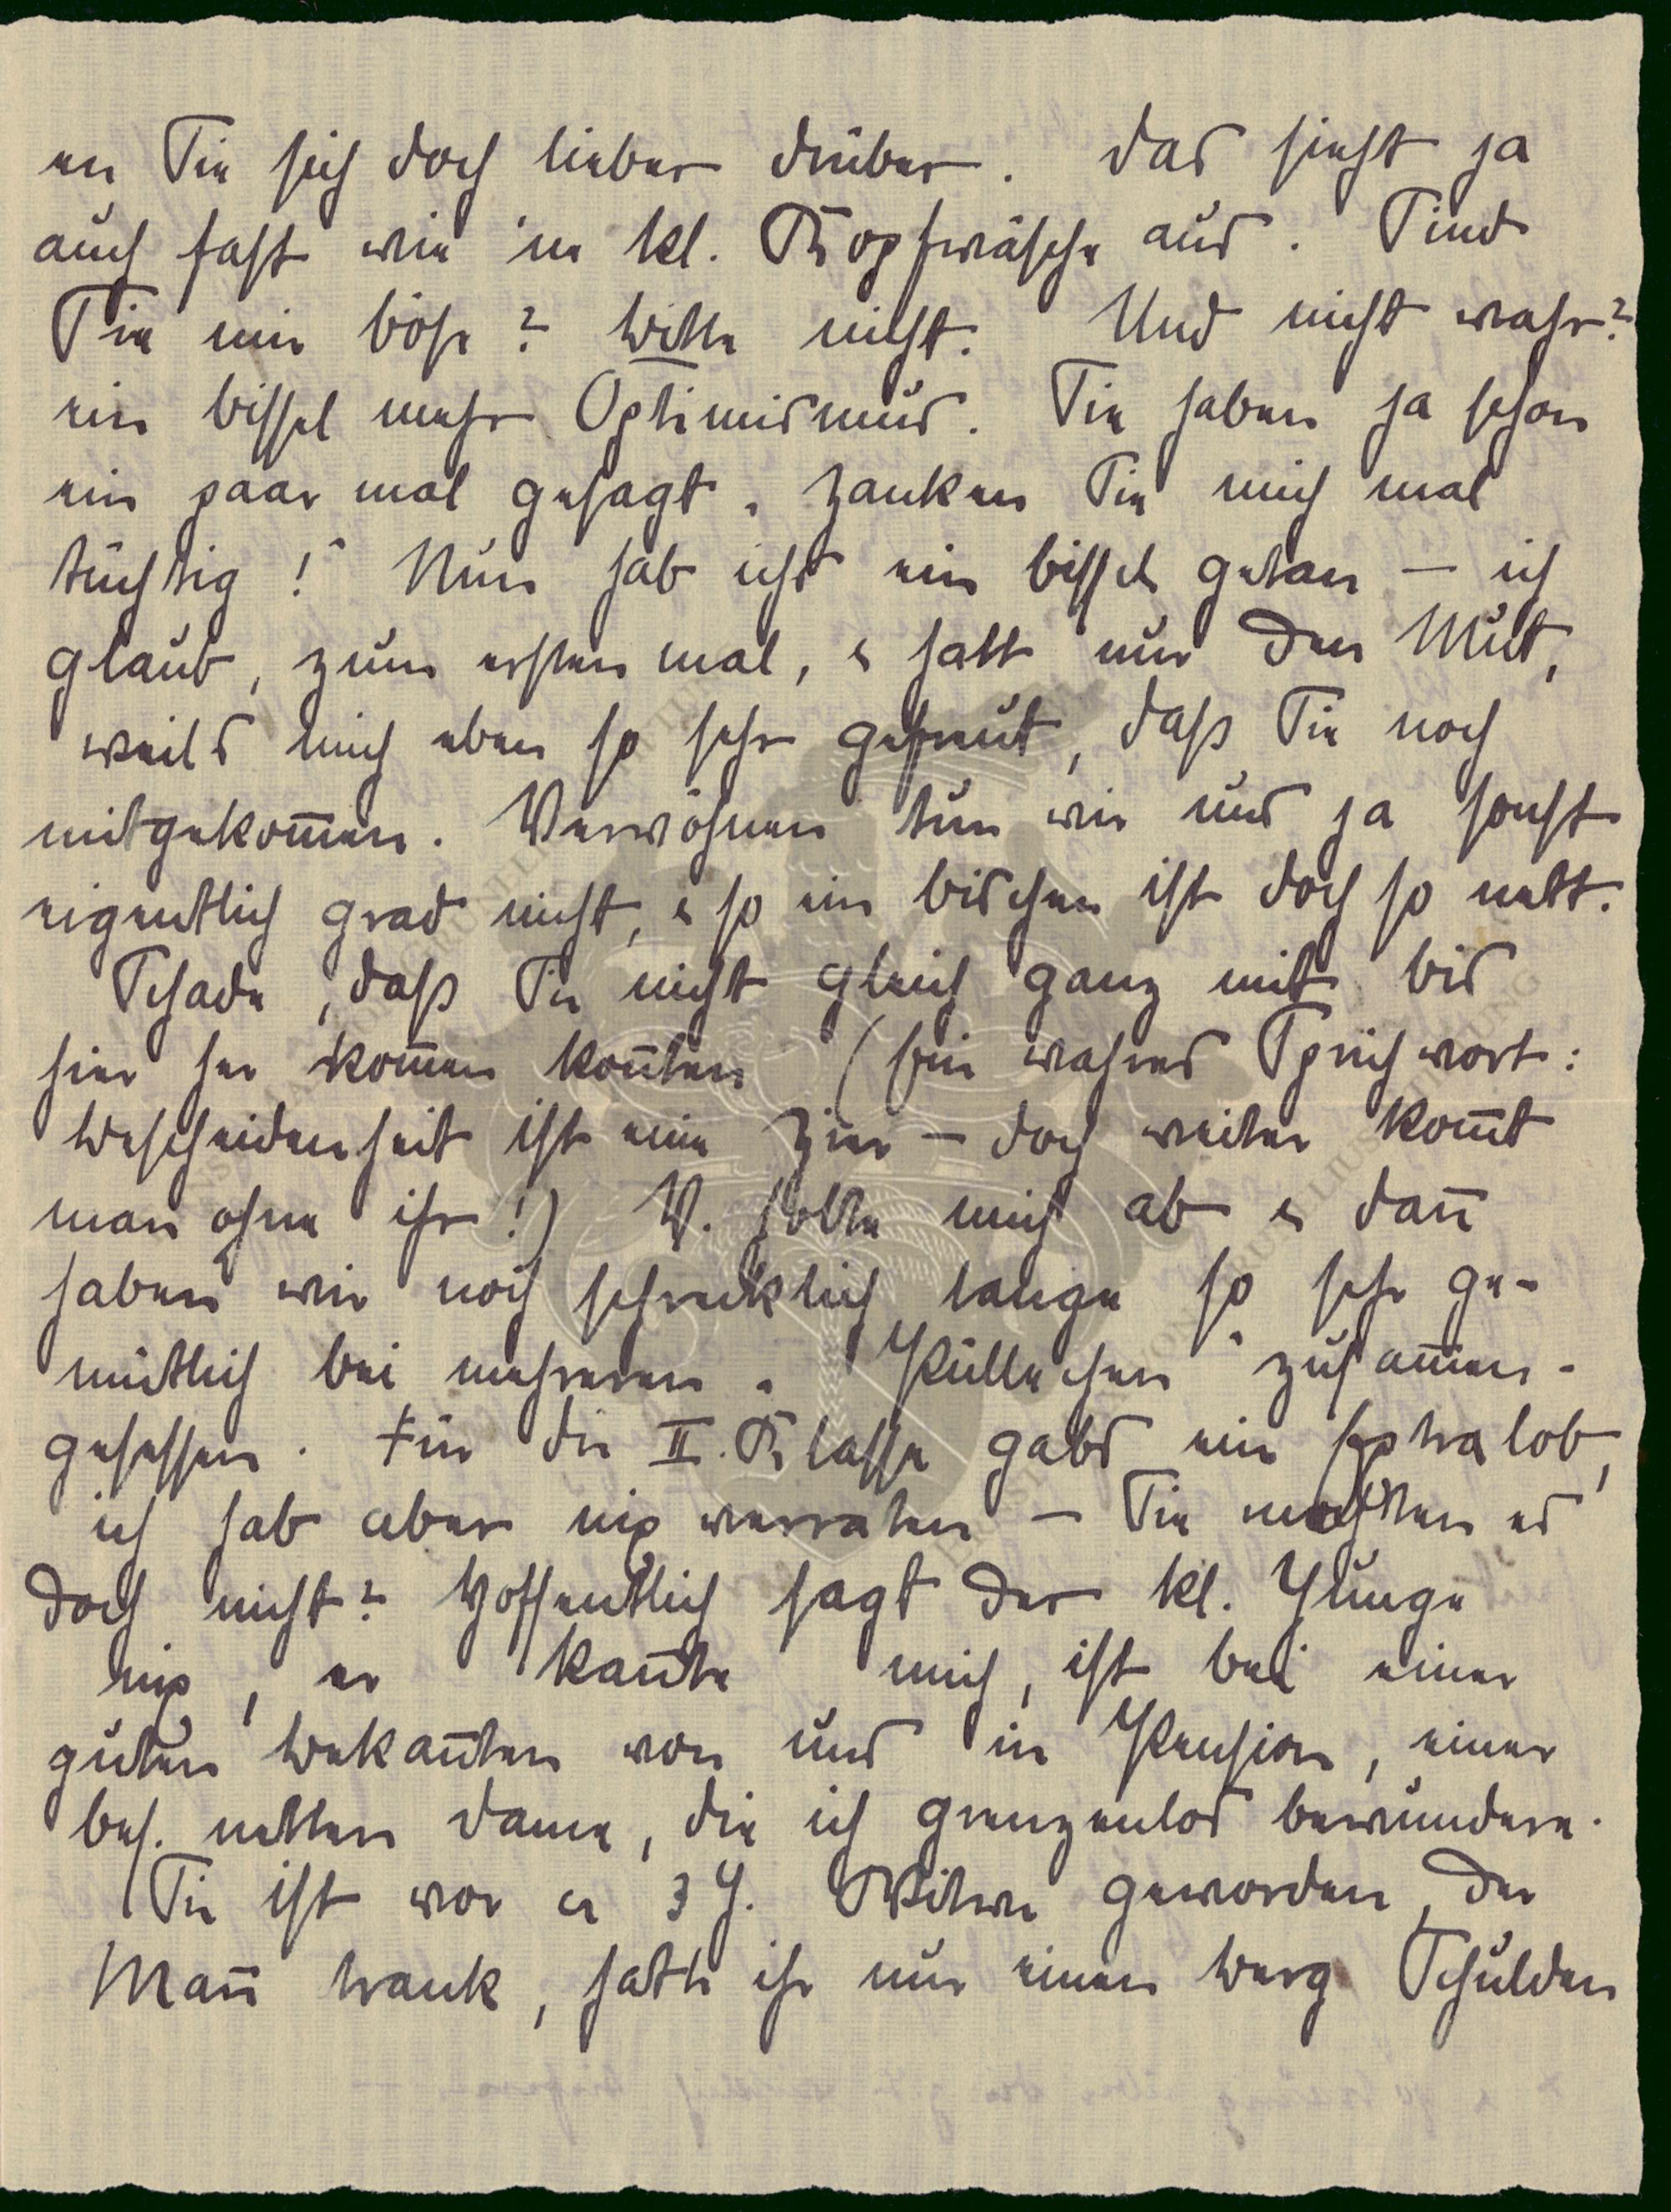 en Sie sich doch lieber drüber. Das sieht ja
auch fast wie 'ne kl. Kopfwäsche aus. Sind
Sie mir böse? Bitte nicht. Und nicht wahr?
ein bissel mehr Optimismus. Sie haben ja schon
ein paar mal gesagt „Zanken Sie mich mal
tüchtig!" Nun hab ichs ein bissel getan – ich
glaub, zum ersten mal, u hatt nur den Mut,
weils mich eben so sehr gefreut, daß Sie noch
mitgekom̅en. Verwöhnen tun wir uns ja sonst
eigentlich grad nicht, u so ein bischen ist doch so nett.
Schade, daß Sie nicht gleich ganz mit bis
hier her kom̅en kon̅ten (Ein wahres Sprichwort:
Bescheidenheit ist eine Zier – doch weiter kom̅t
man ohne ihr!) V. holte mich ab u dan̅
haben wir noch schrecklich lange so sehr ge-
mütlich bei mehreren „Püllechen" zusam̅en-
gesessen. Für die II. Klasse gabs ein Extralob,
ich hab aber nix verraten – Sie mochten es
doch nicht? Hoffentlich sagt der kl. Junge
nix, er kan̅te mich, ist bei einer
guten Bekan̅ten von uns in Pension, einer
bes. netten Dame, die ich grenzenlos bewundere.
Sie ist vor ca 3 J. Witwe geworden, der
Man̅ trank, hatte ihr nur einen Berg Schulden